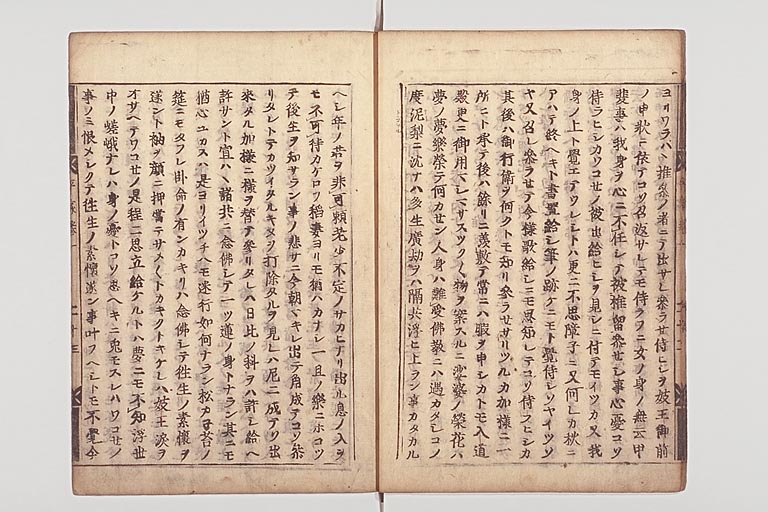 ヨリワラハヽ推參ノ者ニテ出サレ參ラセ侍ヒシヲ妓王御前
ノ申歌ニ依テコソ召返サレテモ侍ラフニ女ノ身ノ無云甲
斐事ハ我身ヲ心ニ不任シテ被推留參セシ事心憂コソ
侍ラヒシカワコセノ被出給ヒシヲ見シニ付テモイツカ又我
身ノ上ト覺エテウレシトハ更ニ不思障子ニ又何レカ秋ニ
アハテ終ヘキト書置給シ筆ノ跡ケニモト覺侍シソヤイツソ
ヤ又召レ參ラセテ今樣歌給シニモ思知レテコソ侍フヒシカ
其後ハ御行衞ヲ何クトモ知リ參ラセサリツルカ加樣ニ一
所ニト承テ後ハ餘リニ羨敷テ常ニハ暇ヲ申シカトモ入道
殿更ニ御用ヘマシマサスツク〳〵物ヲ案スルニ娑婆ノ榮花ハ
夢ノ夢樂榮テ何カセン人身ハ難受佛教ニハ遇カタシコノ
度泥梨ニ沈ナハ多生廣劫ヲハ隔共浮ヒ上ラン事カタカル
ヘシ年ノ若ヲ非可頼老少不定ノサカヒナリ出ル息ノ入ヲ
モ不可待カケロウ稻妻ヨリモ猶ハカナシ一旦ノ樂ニホコツ
テ後生ヲ知サラン事ノ悲サニ今朝マキレ出テ角成テコソ參
リタレトテカツイタルキヌヲ打除タルヲ見レハ尼ニ成テソ出
來タル加樣ニ樣ヲ替テ參リタレハ日比ノ科ヲハ許シ給ヘ
許サント宣ハヽ諸共ニ念佛シテ一ツ道ノ身トナラン其ニモ
猶心ユカスハ是ヨリイツチヘモ迷行如何ナラン松カ根苔ノ
筵ニモタフレ臥命ノ有ンカキリハ念佛シテ往生ノ素懷ヲ
遂ント袖ヲ顔ニ押當テサメ〳〵トカキクトキケレハ妓王涙ヲ
オサヘテワコセノ是程ニ思立給ケルトハ夢ニモ不知浮世
中ノ嵯峨ナレハ身ノ憂トコソ思ヘキニ兎モスレハワコセノ
事ノミ恨メシクテ往生ノ素懷遂ン事叶フヘシトモ不覺今